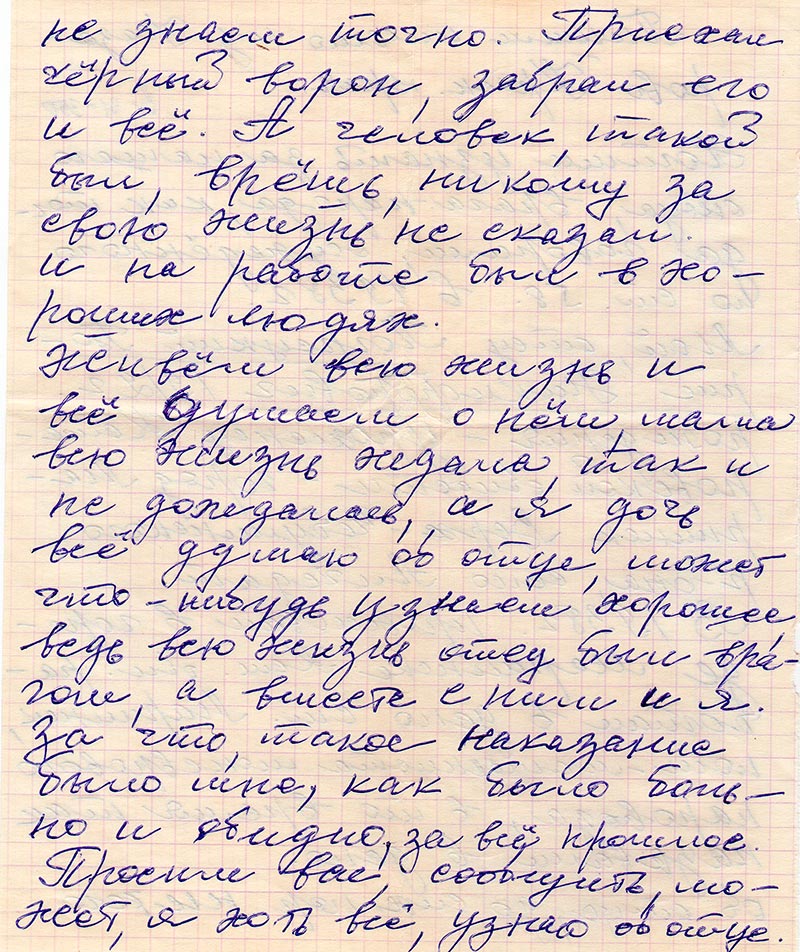 не знаем точно. Приехал
чёрный ворон, забрал его
и всё. А человек, такой
был, врёшь, никому за
свою жизнь не сказал.
и на работе был в хо-
роших людях.
Живём всю жизнь и
всё думаем о нём, мама
всю жизнь ждала, так и
не дождалась, а я дочь
всё думаю об отце, может
что-нибудь узнаем, хорошее,
ведь всю жизнь отец был вра-
гом, а вместе с ним и я.
За что, такое наказание
было мне, как было боль-
но и обидно, за всё прошлое.
Просим вас, сообщить, мо-
жет, я хоть всё, узнаю об отце.